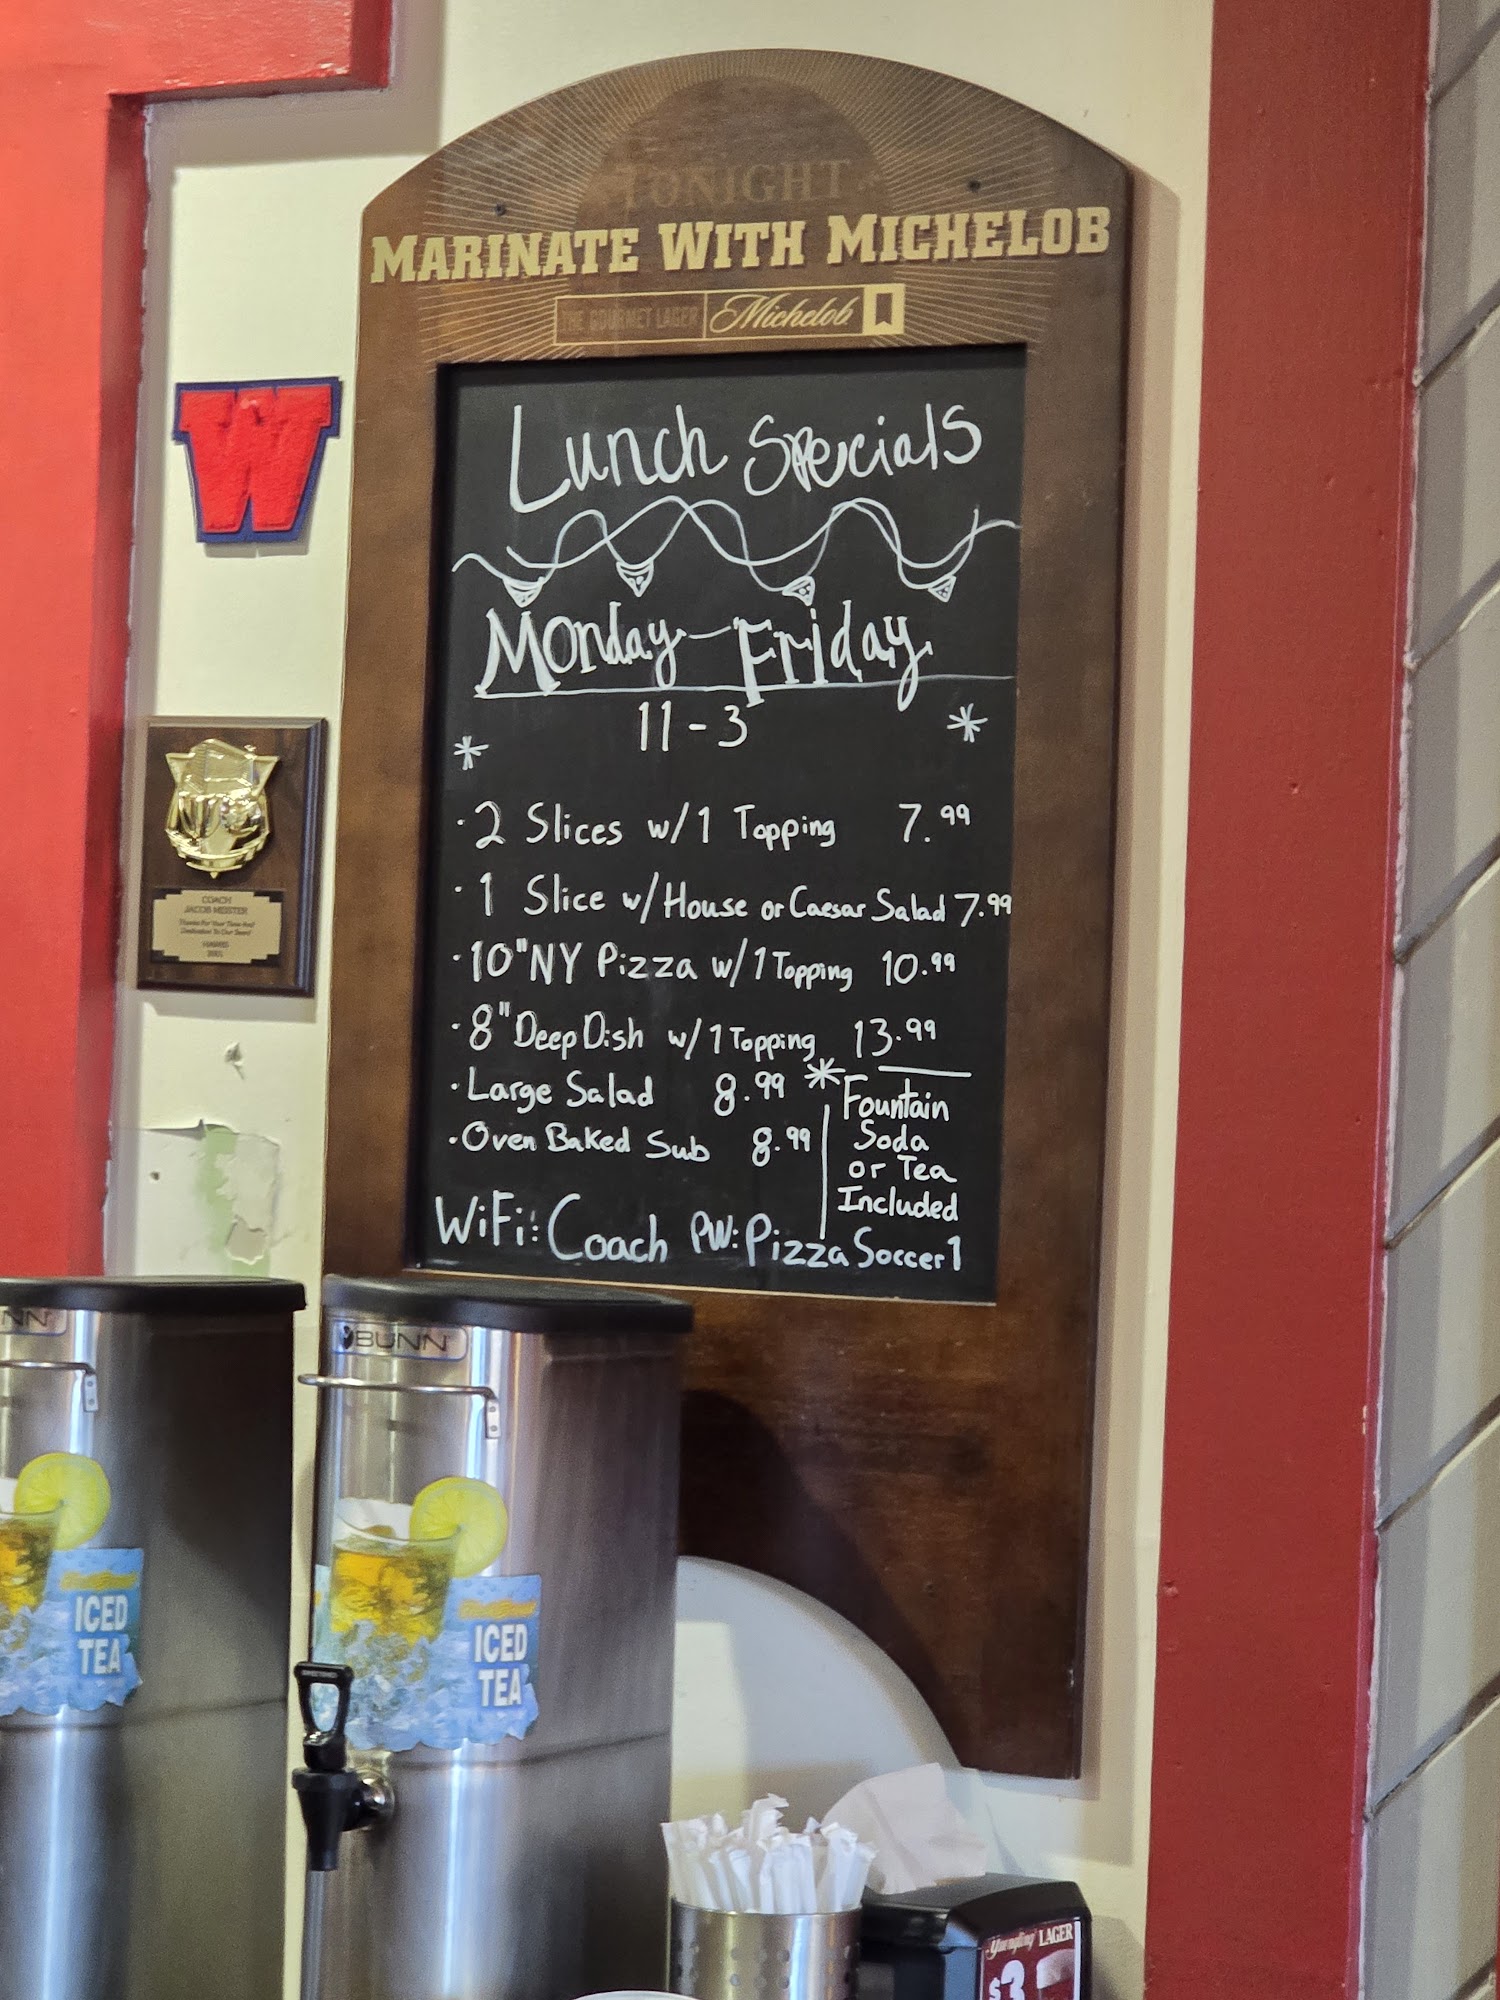 TONIGHT
MARINATE WITH MICHELOB
THE GOURMET LAGER Michelob
W
Lunch Specials
Monday-Friday
11-3
* *
· 2 Slices w/ 1 Topping 7.99
· 1 Slice w/ House or Caesar Salad 7.99
· 10" NY Pizza w/ 1 Topping 10.99
· 8" Deep Dish w/ 1 Topping 13.99
· Large Salad 8.99
· Oven Baked Sub 8.99
* Fountain
Soda
or Tea
Included
WiFi: Coach PW: PizzaSoccer1
COACH
JACOB MEISTER
Thanks For Your Time And
Dedication To Our Team!
NN
BUNN
ICED
TEA
ICED
TEA
Yuengling LAGER
$3